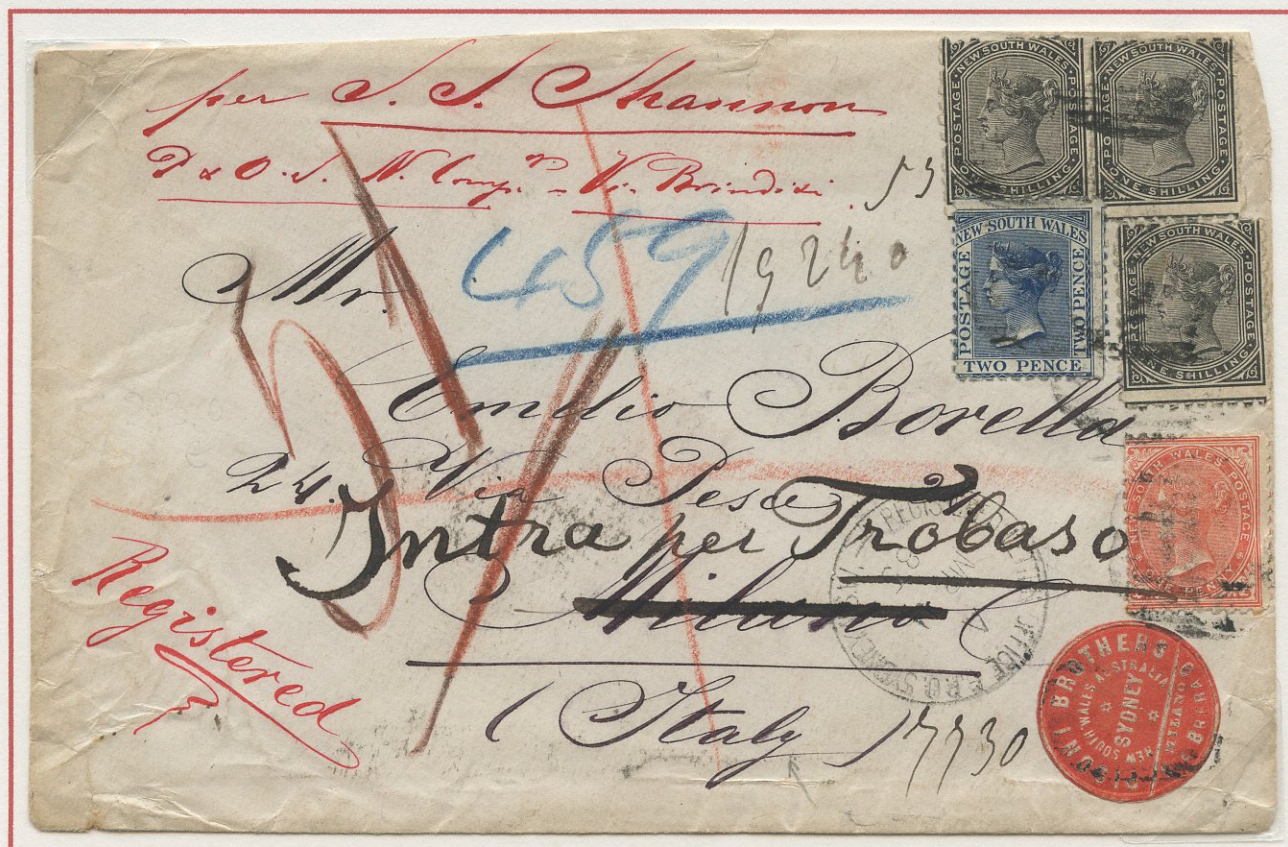 per S. S. Shannon
P & O. S. N. Comp.ny - Via Brindisi
53
459
19240
Mr.
Emilio Borella
24. Via Pesa
Intra per Trobaso
Milano
(Italy)
Registered
7730
POSTAGE · NEW SOUTH WALES · POSTAGE · ONE SHILLING
POSTAGE · NEW SOUTH WALES · POSTAGE · ONE SHILLING
NEW SOUTH WALES
POSTAGE
TWO PENCE
TWO PENCE
POSTAGE NEW SOUTH WALES ONE SHILLING
NEW SOUTH WALES POSTAGE
REGISTERED
OFFICE G.P.O. SYDNEY
BROTHERS
NEW SOUTH WALES AUSTRALIA
SYDNEY